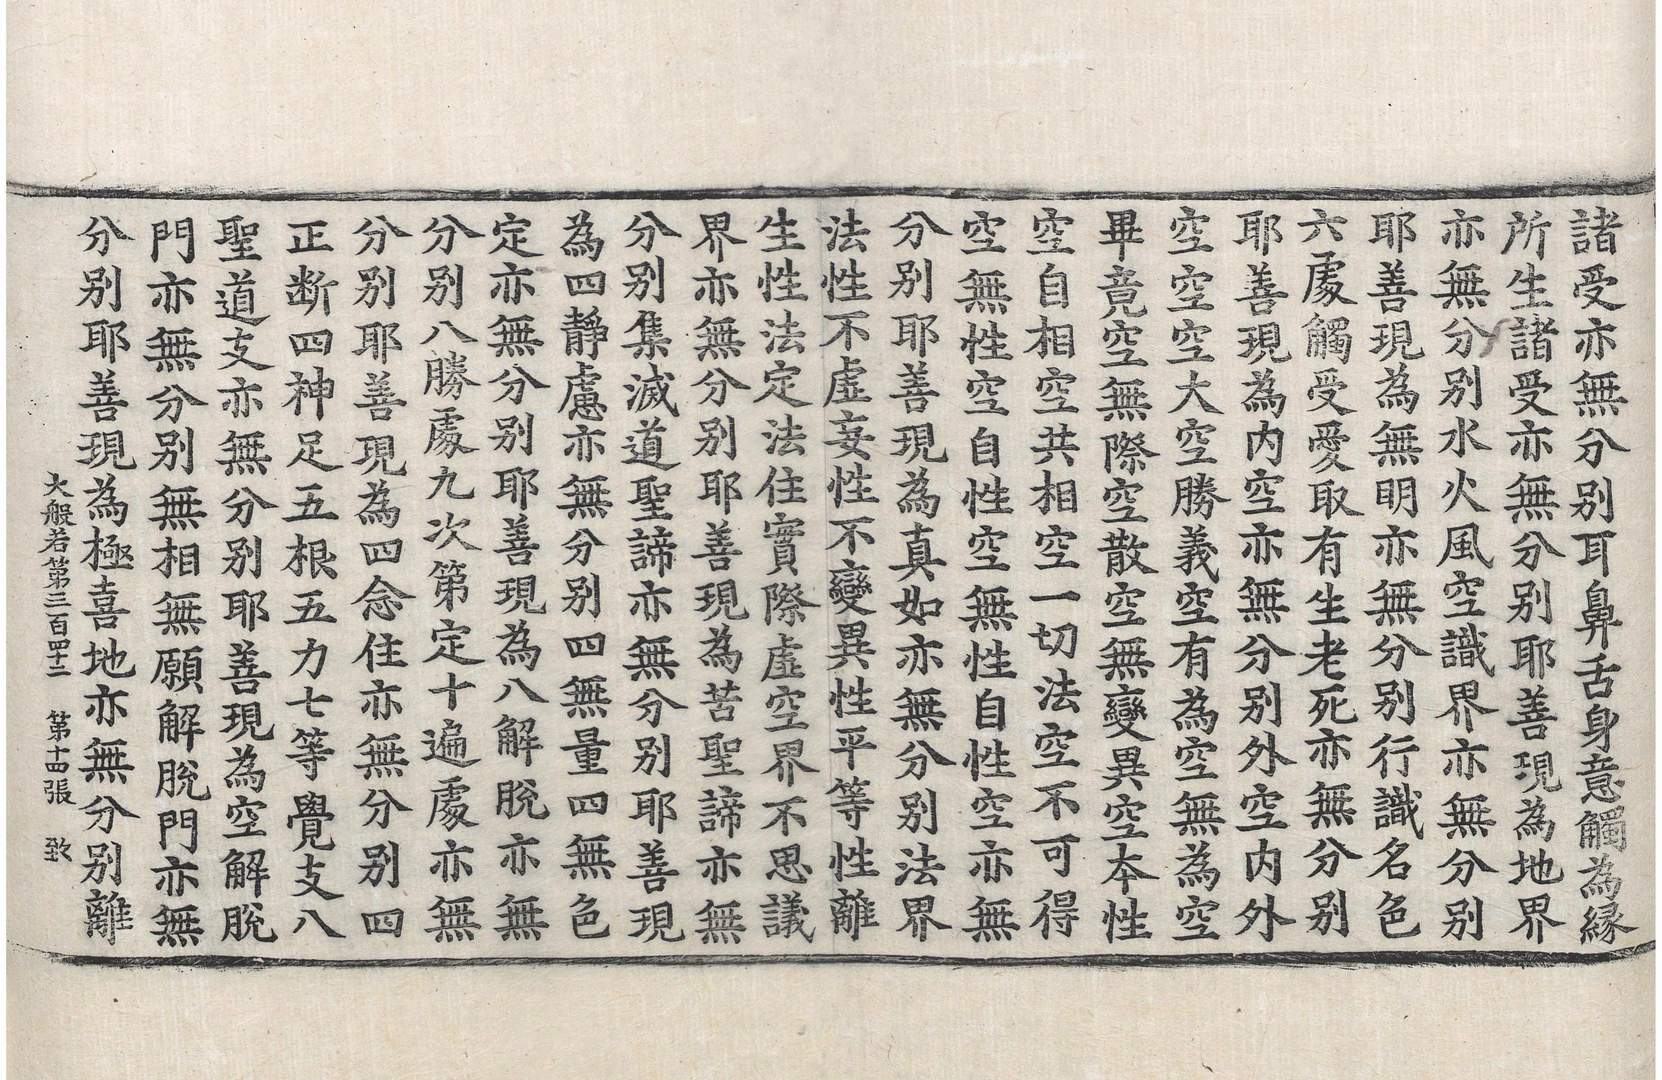 諸受亦無分别耳鼻舌身意觸為緣
所生諸受亦無分别耶善現為地界
亦無分别水火風空識界亦無分别
耶善現為無明亦無分别行識名色
六處觸受愛取有生老死亦無分别
耶善現為内空亦無分别外空内外
空空空大空勝義空有為空無為空
畢竟空無際空散空無變異空本性
空自相空共相空一切法空不可得
空無性空自性空無性自性空亦無
分别耶善現為真如亦無分别法界
法性不虛妄性不變異性平等性離
生性法定法住實際虛空界不思議
界亦無分别耶善現為苦聖諦亦無
分别集滅道聖諦亦無分别耶善現
為四靜慮亦無分别四無量四無色
定亦無分别耶善現為八解脫亦無
分别八勝處九次第定十遍處亦無
分别耶善現為四念住亦無分别四
正断四神足五根五力七等覺支八
聖道支亦無分别耶善現為空解脫
門亦無分别無相無願解脫門亦無
分别耶善現為極喜地亦無分别離
大般若第三百四十二 第十四張 致